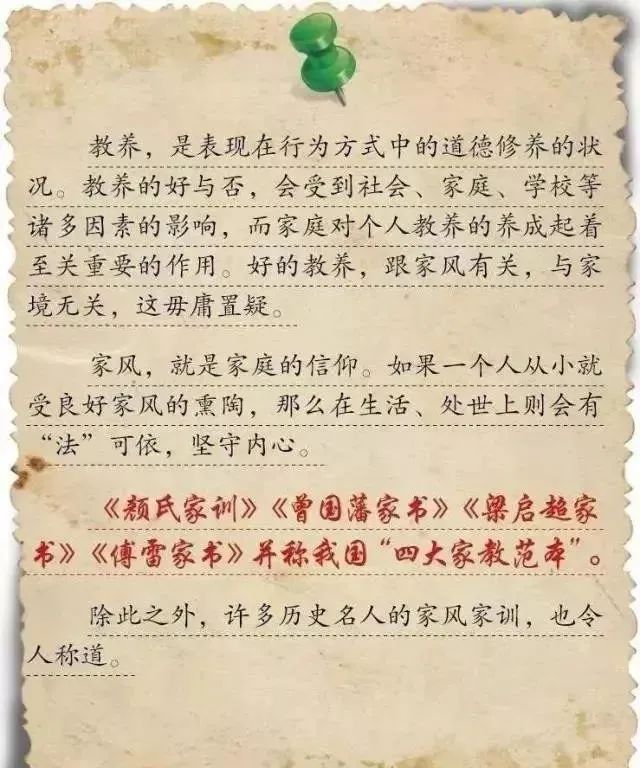 教养，是表现在行为方式中的道德修养的状
况。教养的好与否，会受到社会、家庭、学校等
诸多因素的影响，而家庭对个人教养的养成起着
至关重要的作用。好的教养，跟家风有关，与家
境无关，这毋庸置疑。
家风，就是家庭的信仰。如果一个人从小就
受良好家风的熏陶，那么在生活、处世上则会有
“法”可依，坚守内心。
《颜氏家训》《曾国藩家书》《梁启超家
书》《傅雷家书》并称我国“四大家教范本”。
除此之外，许多历史名人的家风家训，也令
人称道。